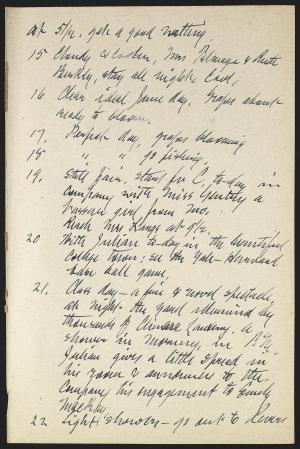 at 5 1/2, get a good wetting
15 Cloudy & cooler, Mrs & Ruth
stay all night. Cool,
16 Clear ideal June day. Grapes about
ready to bloom.
17. Perfect day, grapes blooming
18 " " " go fishing,
19. Still fair. Start for C. to-day in
company with Miss Gentry a
Vassar girl from Mo.
Reach Mrs. Kings at 9 1/2.
20 With Julian to-day in the beautiful
college town; see the Yale-Harvard
base ball game,
21. Class day - a fine & novel spectacle,
at night the yard illumined by
thousands of Chinese lanterns. a
shower in morning, in P.M.
Julian gives a little spread in
his room & announces to the
company his engagement to Emily
Mackay
22 Light showers - go out to Revere